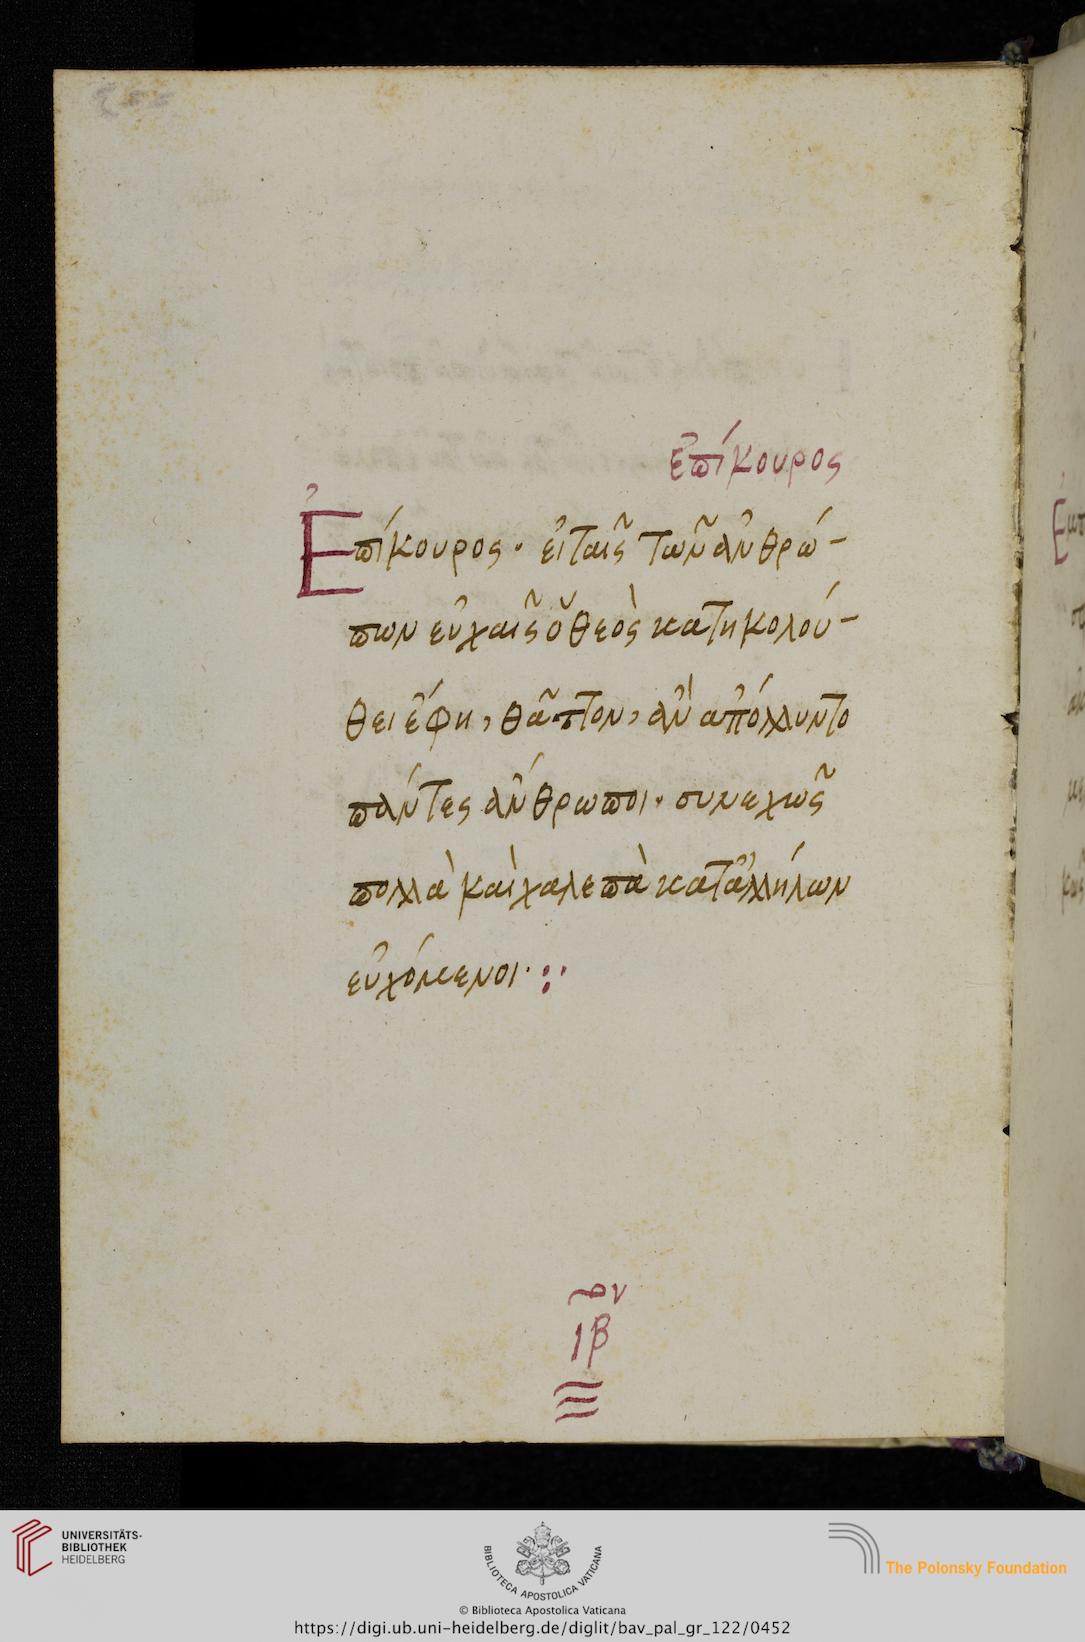 ἐπίκουρος
Ἐπίκουρος· εἰ ταῖς τῶν ἀνθρώ-
πων εὐχαῖς ὁ θεὸς κατηκολού-
θει ἔφη, θᾶττον, ἂν ἀπόλλυντο
πάντες ἄνθρωποι· συνεχῶς
πολλὰ καὶ χαλεπὰ κατ' ἀλλήλων
εὐχόμενοι· :·
ιβ
UNIVERSITÄTS-
BIBLIOTHEK
HEIDELBERG
BIBLIOTECA APOSTOLICA VATICANA
The Polonsky Foundation
© Biblioteca Apostolica Vaticana
https://digi.ub.uni-heidelberg.de/diglit/bav_pal_gr_122/0452